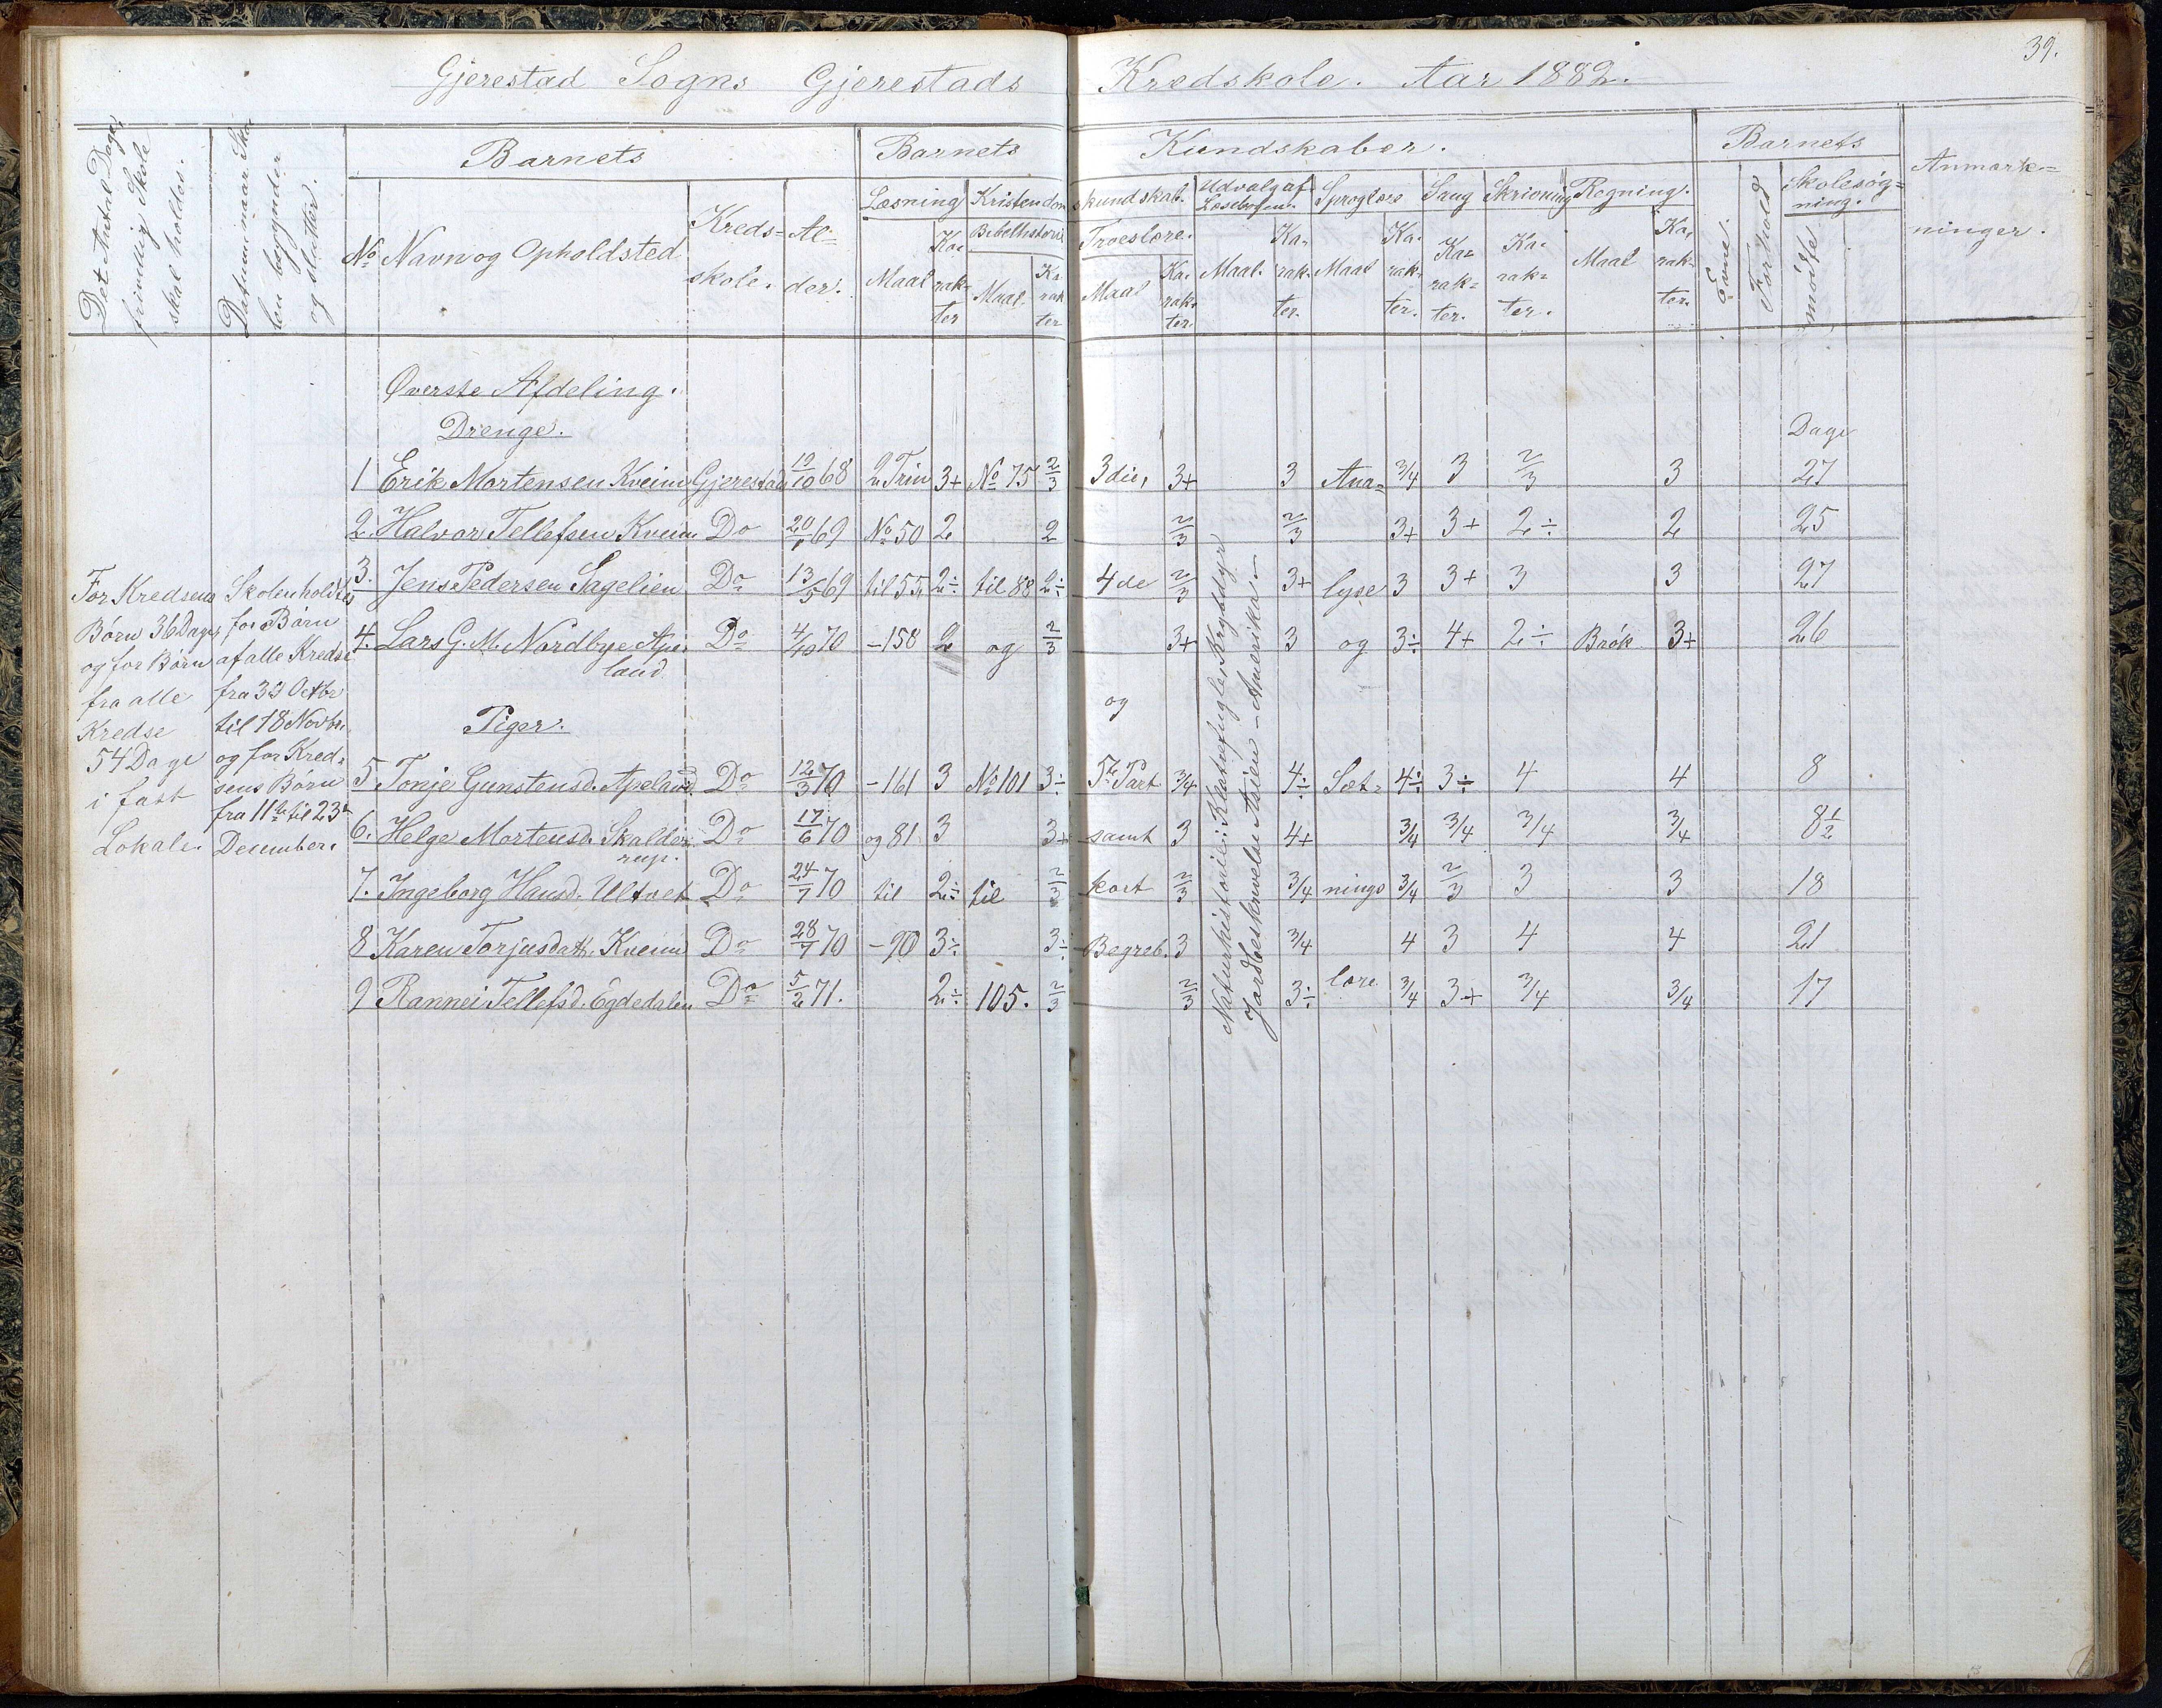 39.
Gjerestad Sogns Gjerestads Kredskole. Aar 1882.
Det Antal Dage, frivillig Skole skal holdes.
Datum naar Skolen begynder og slutter.
Barnets
No Navn og Opholdsted
Kreds= skole.
Al= der.
Barnets Kundskaber.
Læsning
Maal
Ka= rak= ter
Kristendomskundskab.
Bibelhistorie
Maal.
Ka rak ter
Troeslære.
Maal
Ka= rak= ter
Udvalg af Læsebogen.
Maal.
Ka= rak= ter.
Sproglære
Maal
Ka= rak= ter.
Sang
Ka= rak= ter.
Skrivning
Ka= rak= ter.
Regning.
Maal
Ka= rak= ter.
Barnets
Evne.
Forhold
Skolesøg= ning.
mødte
Anmærk= ninger.
Øverste Afdeling.
Drenge.
Dage
1 Erik Mortensen Kveim Gjerestad 19/10 68 2 Trin 3+ No 75 2/3 3die, 3+ 3 Ana= 3/4 3 2/3 3 27
2. Halvor Tellefsen Kveim Do 69 No 50 2 2 2/3 2/3 3+ 3+ 2÷ 2 25
3. Jens Pedersen Sagelien Do 13/5 69 til 55, 2÷ til 88 2÷ 4de 2/3 3+ lyse 3 3+ 3 3 27
4. Lars G. M. Nordbye Ape= land Do 4/10 70 - 158 2 og 2/3 3+ 3 og 3÷ 4+ 2÷ Brøk 3+ 26
og
Piger.
5. Tonje Gunstensd. Apeland Do 12/3 70 - 161 3 No 101 3÷ 5te Part 3/4 4÷ Sæt= 4÷ 3÷ 4 4 8
6. Helge Mortensd. Skalde= rup. Do 17/6 70 og 81 3 3+ samt 3 4+ 3/4 3/4 3/4 3/4 8 1/2
7. Ingeborg Hansd. Ultvet Do 24/7 70 til 2÷ til 2/3 kort 2/3 3/4 nings 3/4 2/3 3 3 18
8 Karen Torjusdatt. Kveim Do 28/7 70 - 90 3÷ 3÷ Begreb. 3 3/4 4 3 4 4 21
9 Rannei Tellefsd. Egdedalen Do 5/2 71. 2÷ 105. 2/3 2/3 3÷ lære 3/4 3+ 3/4 3/4 17
For Kredsens
Børn 36 Dage,
og for Børn
fra alle
Kredse
54 Dage
i fast
Lokale.
Skolen holdtes
for Børn
af alle Kredse
fra Octbr
til 18 Novbr.
og for Kred=
sens Børn
fra 11te til 23de
December.
Naturhistorie: Klatrefugle, Krybdyr
Jordbeskrivelse Asien - Amerika -